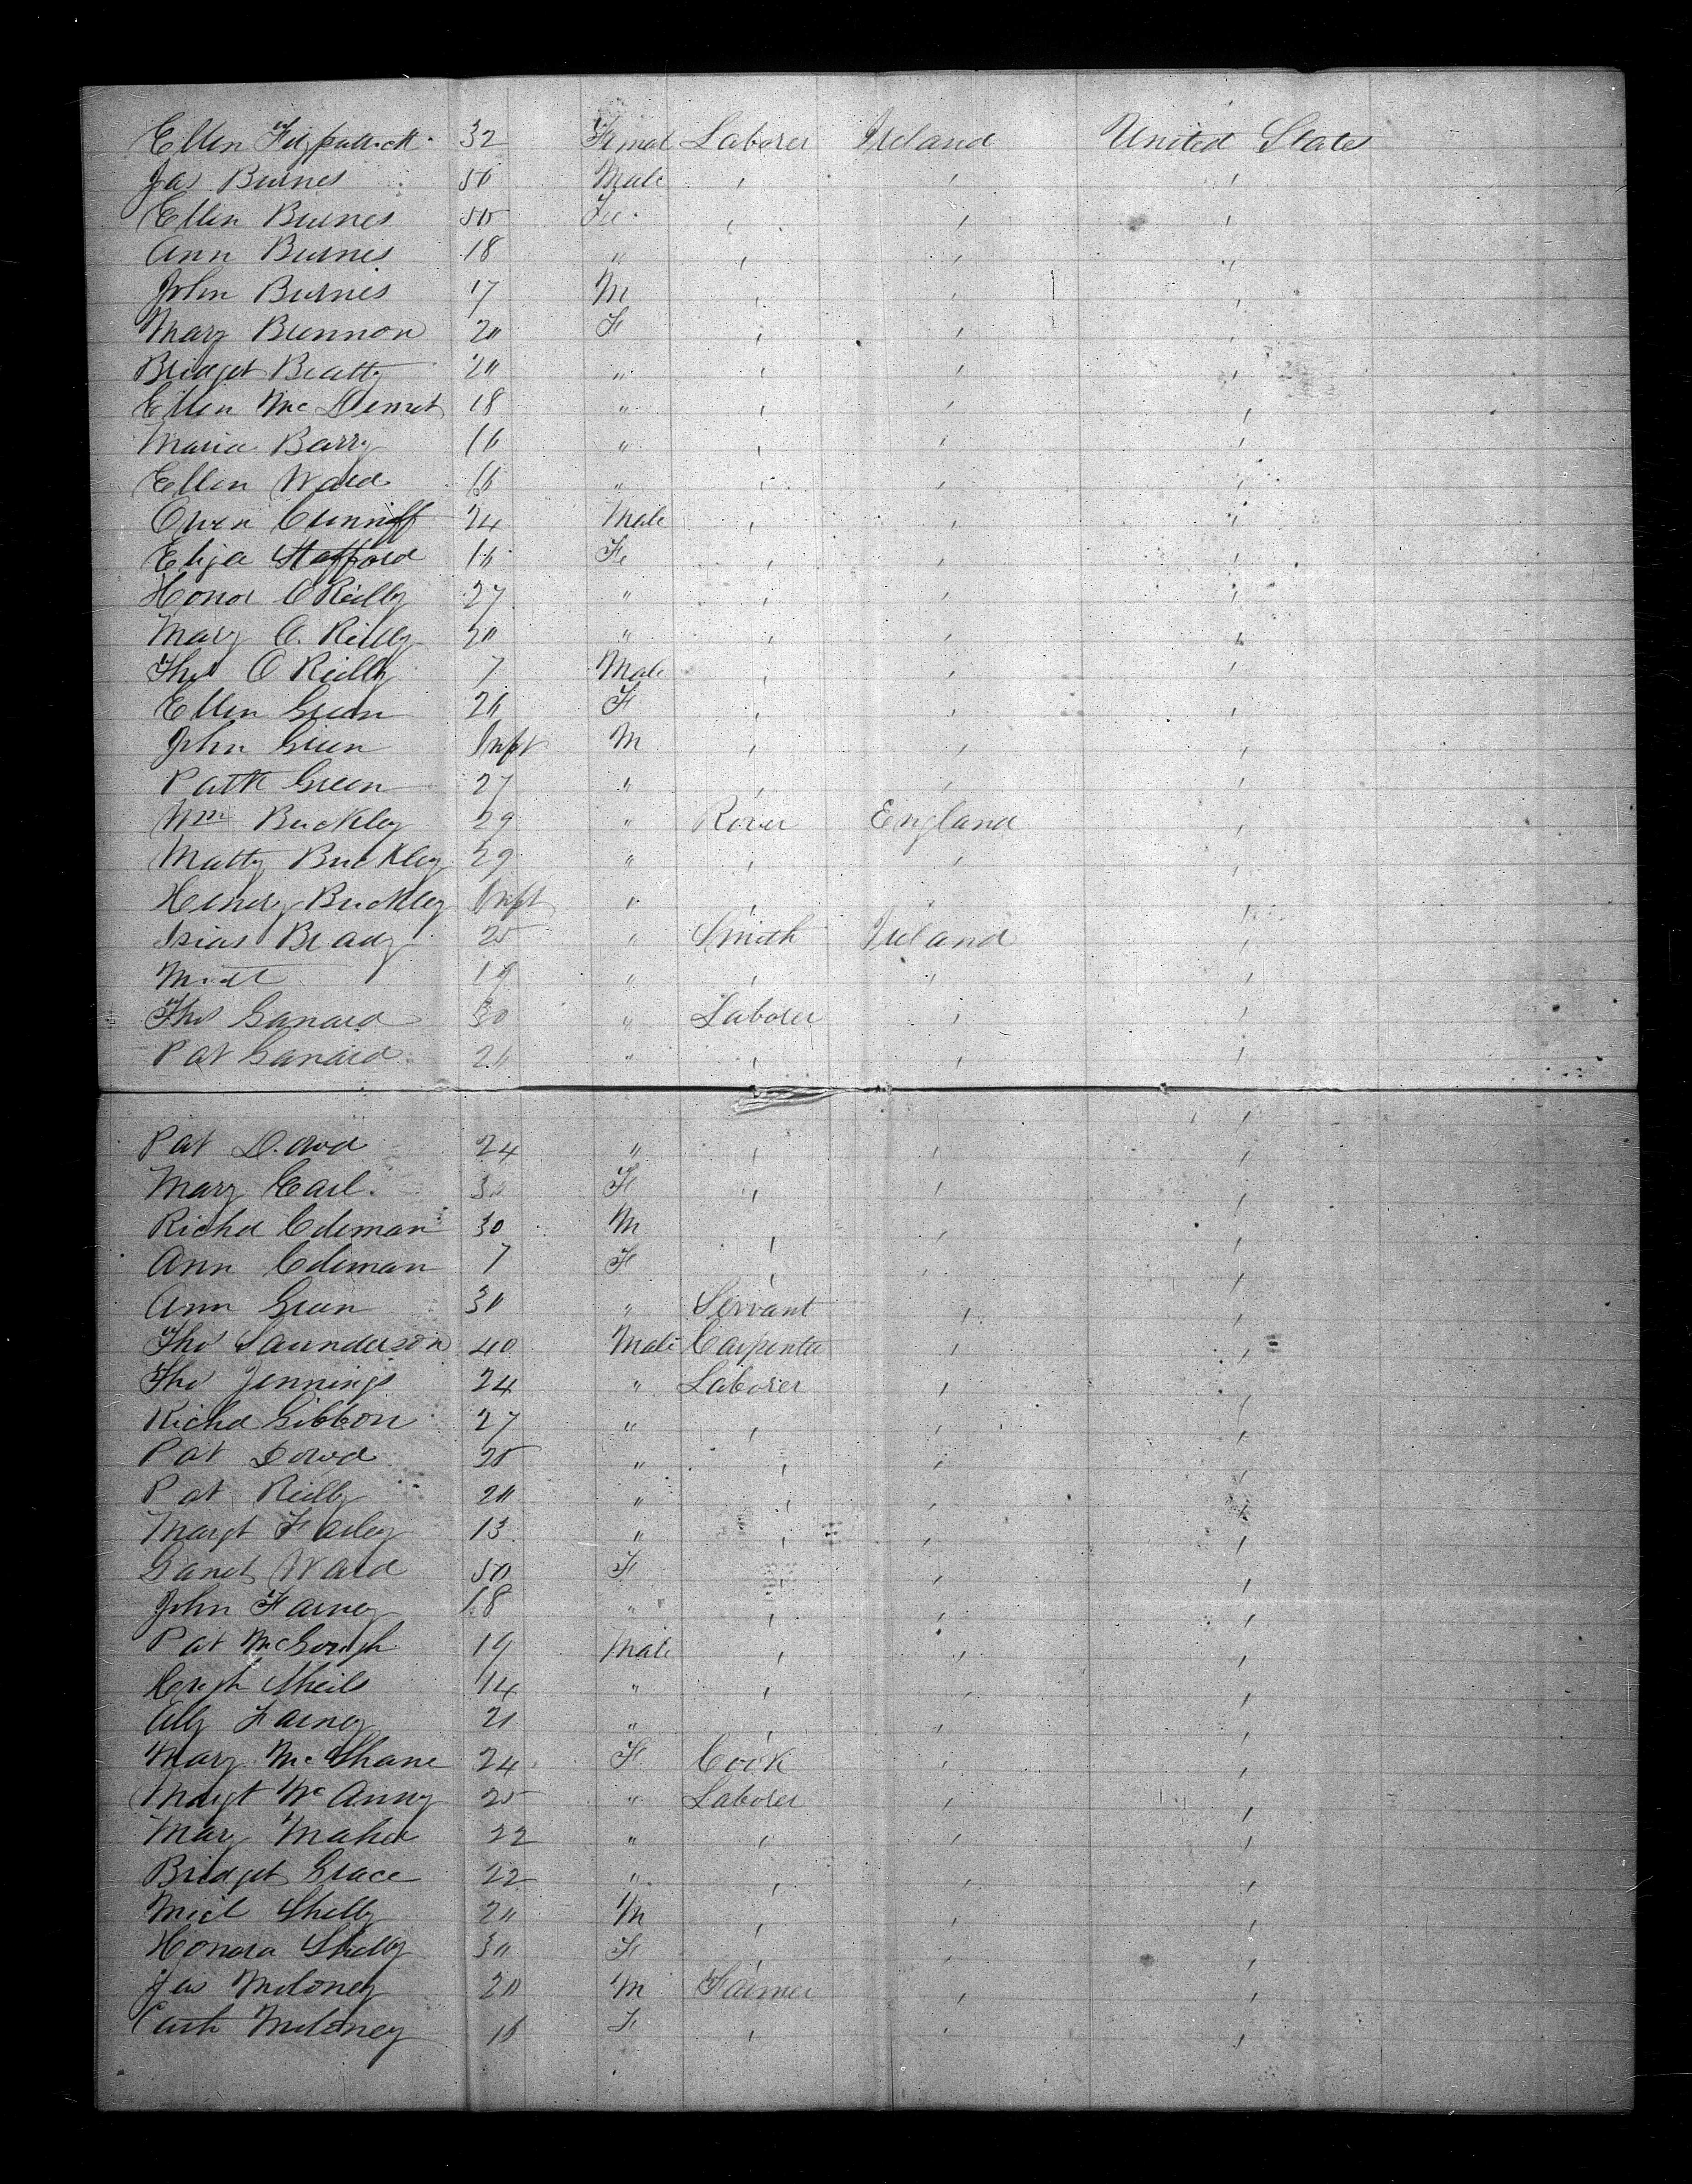 Ellen Fitzpatrick 32 Femal Laborer Ireland United States
Jas Burnes 56 Male , , ,
Ellen Burnes 50 Fe. , , ,
Ann Burnes 18 " , , "
John Burnes 17 M , , ,
Mary Brennon 20 F , , ,
Bridget Beatty 20 " , , ,
Ellen McDermet 18 " , , ,
Maria Barry 16 " , , ,
Ellen Ward 16 " , , ,
Owen Cunniff 24 Male , , "
Eliza Stafford 16 Fe , , ,
Honor O Reilly 27 " , , ,
Mary O. Reilly 20 " , , ,
Thos O Reilly 7 Male , , ,
Ellen Green 26 F , , ,
John Green Inft M , , ,
Patk Green 27 " , , ,
Wm Buckley 29 " England ,
Matty Buckley 29 " , , ,
Henery Buckley Inft " , , ,
Brady 25 " Smith Ireland ,
19 " , " ,
Thos Ganard 30 " Laborer , ,
Pat Ganard 26 " , , ,
Pat Dowd 24 " , , ,
Mary Earl 30 F , , ,
Richd Coleman 30 M , , ,
Ann Coleman 7 F , , ,
Ann Green 30 " Servant , ,
Thos Saunderson 40 Male Carpenter , ,
Thos Jennings 24 " Laborer , ,
Richd Gibbon 27 " , , ,
Pat Dowd 25 " , , ,
Pat Reilly 20 " , , ,
Margt Farley 13 " , , ,
Ward 50 F , , ,
John Farney 18 " , , ,
Pat McGough 19 Male , , ,
Hugh Sheils 14 " , , ,
Ally Farney 21 " , " ,
Mary McShane 24 F Cook , ,
Margt McAnny 25 " Laborer , ,
Mary Maher 22 " , , ,
Bridget Grace 22 " , , ,
Micl Shelly 20 M , , ,
Honora Shelly 30 F , , ,
Jas Moloney 20 M Farmer , ,
Cath Moloney 16 F , , ,